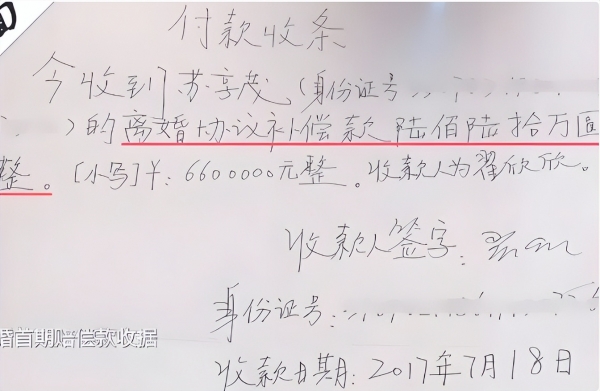 面
付款收条
今收到苏享茂(身份证号
)的离婚协议补偿款陆佰陆拾万圆
整。[小写]¥:6600000元整。收款人为翟欣欣。
收款人签字:
身份证号:
婚首期赔偿款收据
收款日期:2017年7月18日